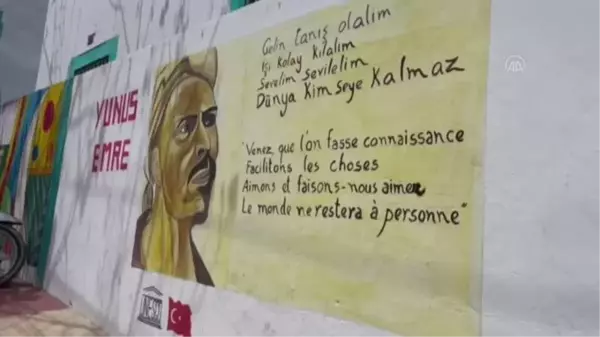 YUNUS
EMRE
Gelin tanış olalım
İşi kolay kılalım
Sevelim sevilelim
Dünya kimseye Kalmaz
"Venez, que l'on fasse connaissance
Facilitons les choses
Aimons et faisons-nous aimer
Le monde ne restera à personne"
UNESCO
AA